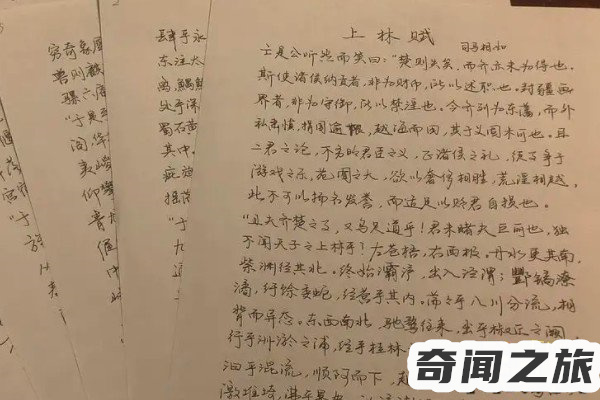 穷奇象犀
兽则麒
"于是乎
仰攀
肆乎永
东注太
处乎深
蜀石黄
其中.
"于
上林赋
司马相如
亡是公听然而笑曰："楚则失矣，而齐亦未为得也.
使诸侯纳贡者，非为财币，所以述职也。封疆画
界者，非为守御，所以禁淫也。今齐列为东藩，而外
私肃慎，捐国逾限，越海而田，其于义固未可也。且
二君之论，不务明君臣之义，正诸侯之礼，徒事争于
游戏之乐，苑囿之大，欲以奢侈相胜，荒淫相越，
此不可以扬名发誉，而适足以贬君自损也。
"且夫齐楚之事，又乌足道乎！君未睹夫巨丽也，独
不闻天子之上林乎？左苍梧，右西极。丹水更其南，
紫渊径其北。终始灞浐，出入泾渭；酆镐潦
潏，纡馀委蛇，经营乎其内。荡荡乎八川分流，相
背而异态。东西南北，驰骛往来，出乎椒丘之阙，
行乎洲淤之浦，径乎桂林
汩乎混流，顺阿而下，赴
激堆埼，
奇闻之旅